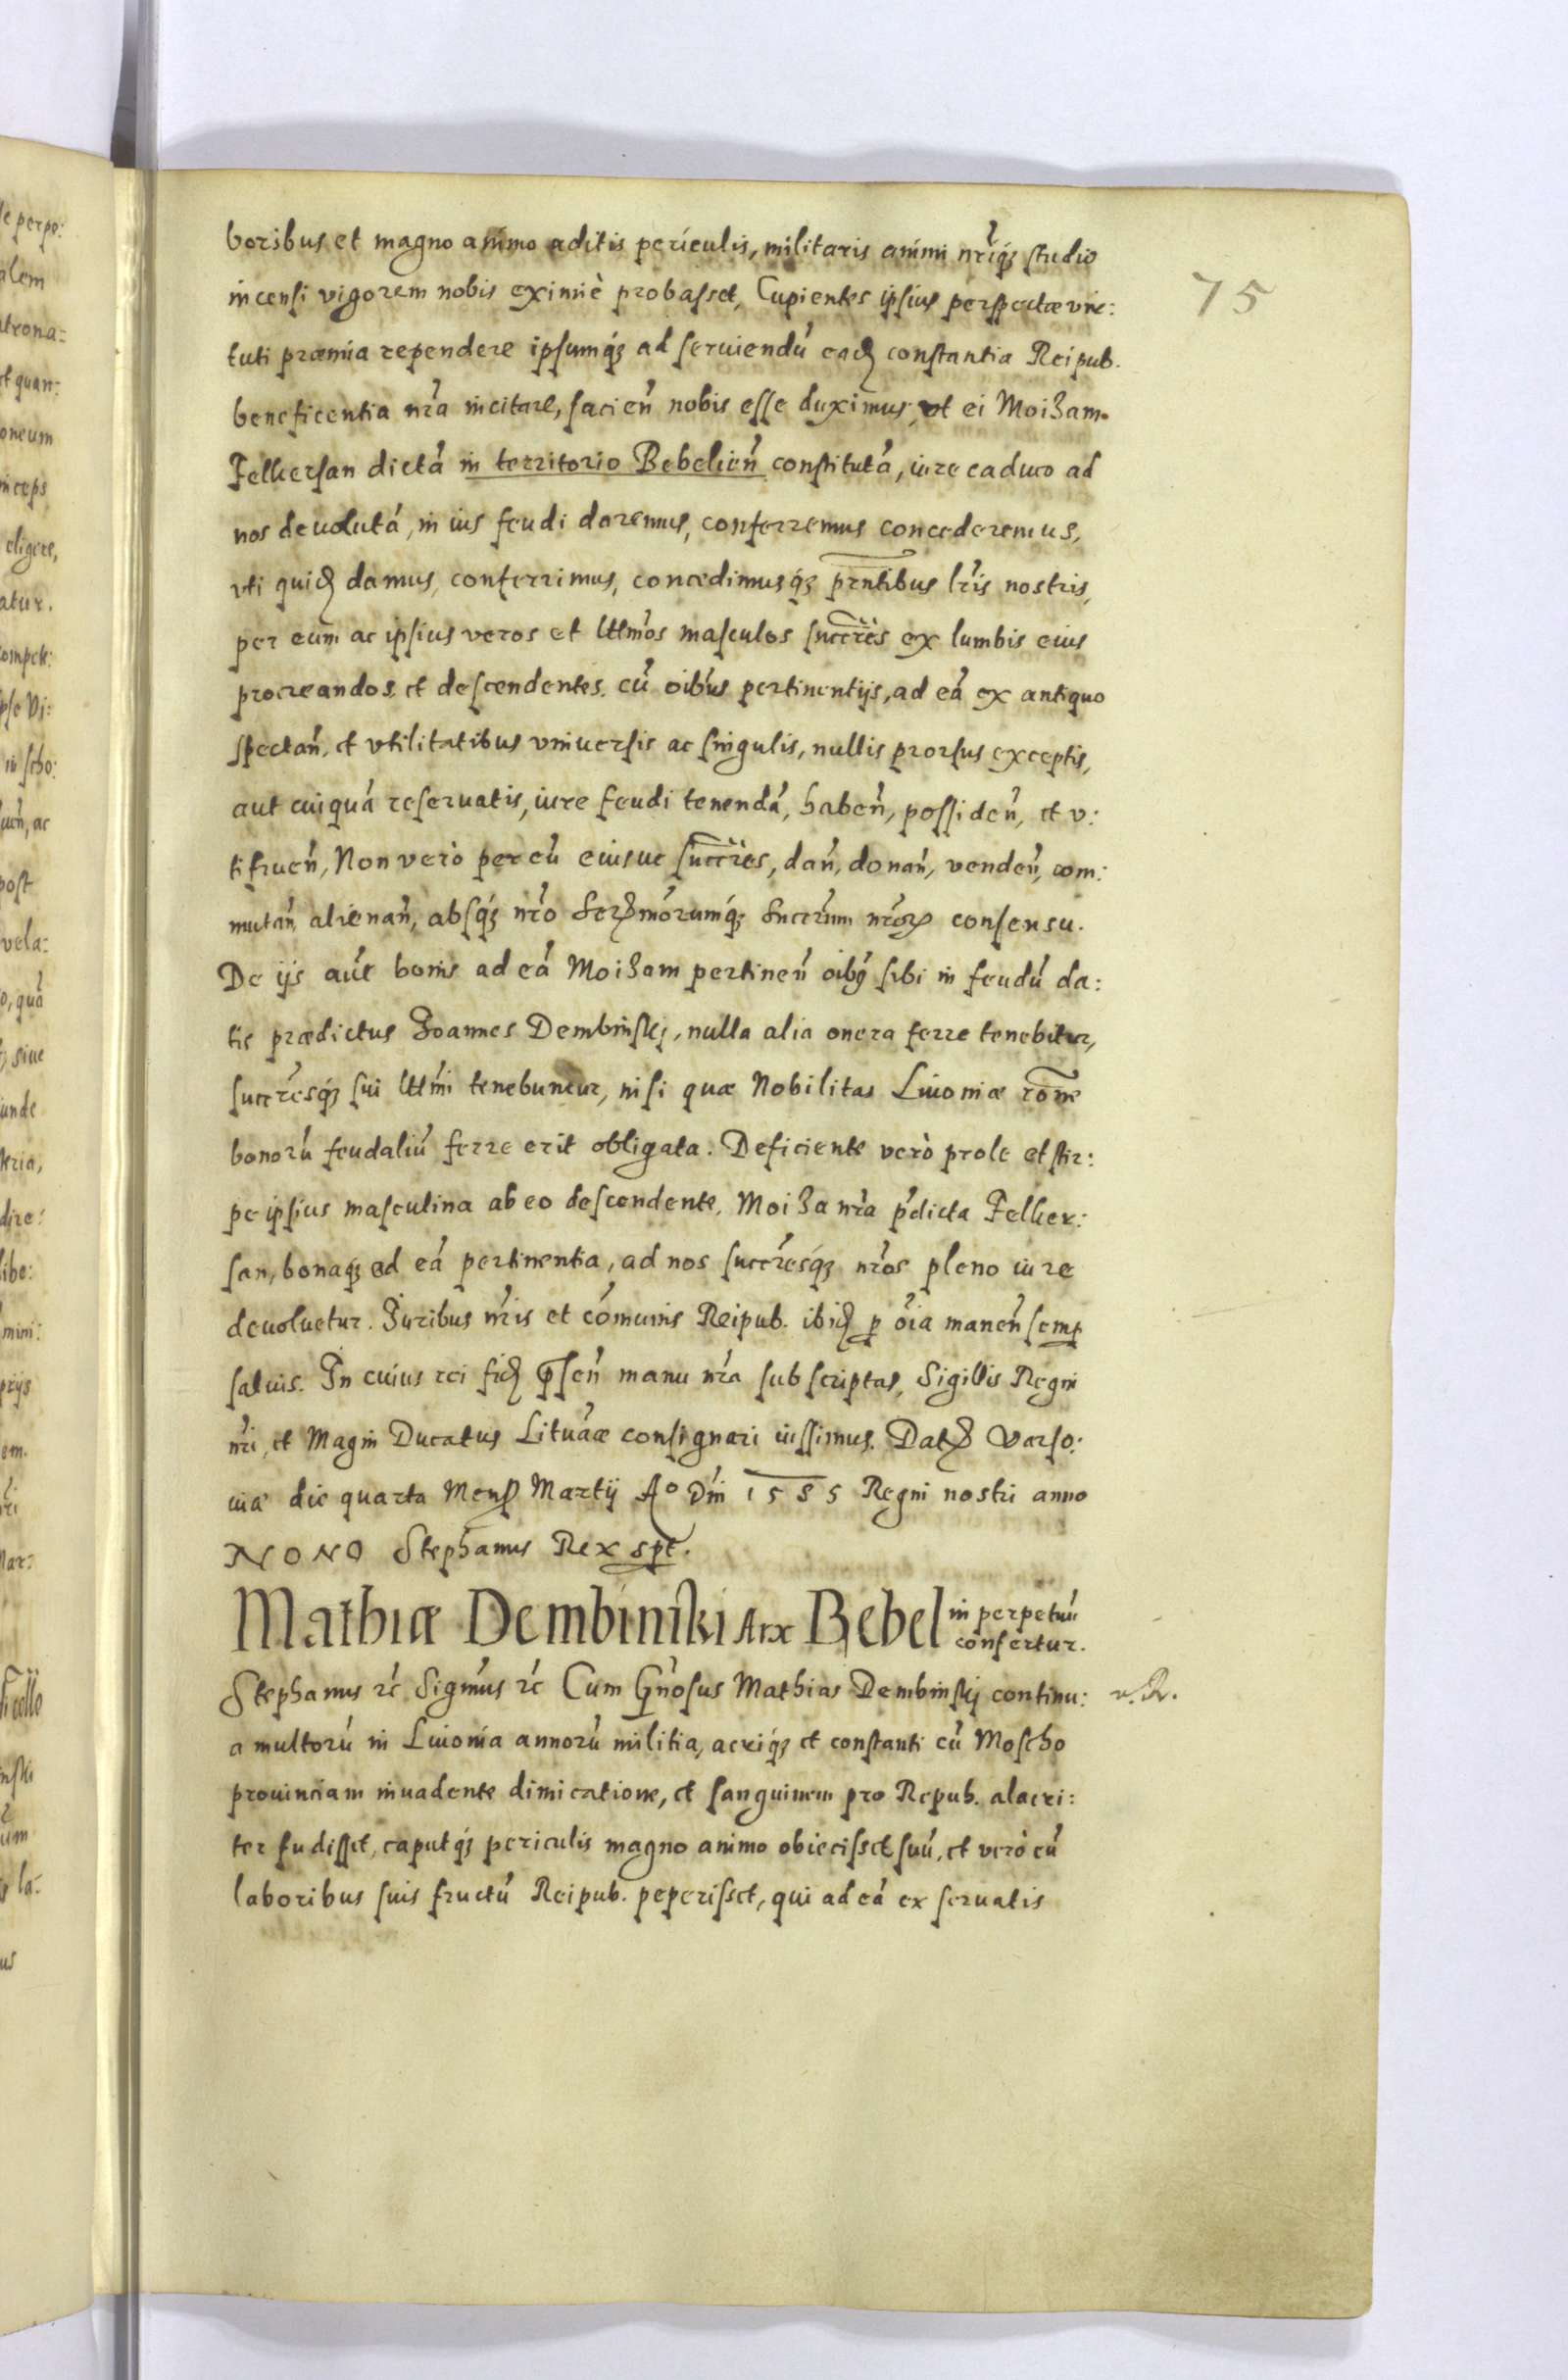 75
boribus et magno animo aditis periculis, militaris animi nr̃iq́ꝫ studio
incensi vigorem nobis eximiè probasset, Cupientes ipsius perspectæ vir:
tuti præmia rependere ipsumq́ꝫ ad seruiendũ eadẽ constantia Reipub.
beneficentia nr̃a incitare, facieñ nobis esse duximus, vt ei Moizam
Felkersan dictã in territorio Bebelieñ constitutã, iure caduco ad
nos deuolutã, in ius feudi daremus, conferremus concederemus,
vti quidẽ damus, conferrimus, concedimusq́ꝫ pr̃ntibus lr̃is nostris,
per eum ac ipsius veros et lttm̃os masculos succr̃es ex lumbis eius
procreandos et descendentes. cũ oĩbus pertinentijs, ad eã ex antiquo
spectañ, et vtilitatibus vniuersis ac singulis, nullis prorsus exceptis,
aut cuiquã reseruatis, iure feudi tenendã, habeñ, possideñ, et v:
tifrueñ, Non verò per eũ eiusue succr̃es, dañ, donañ, vendeñ, com:
mutañ alienañ, absq́ꝫ nr̃o Serẽmorumq́ꝫ Succr̃um nr̃orꝫ consensu.
De ijs aũt bonis ad eã Moizam pertineñ oĩbꝰ sibi in feudũ da:
tis prædictus Joannes Dembinskj, nulla alia onera ferre tenebitur,
succr̃esq́ꝫ sui lttm̃i tenebuntur, nisi quæ Nobilitas Liuoniæ rõne
bonorũ feudaliũ ferre erit obligata. Deficiente verò prole et stir:
pe ipsius masculina ab eo descendente, Moiza nr̃a p̃dicta Felker:
san, bonaq́ꝫ ad eã pertinentia, ad nos succr̃esq́ꝫ nr̃os pleno iure
deuoluetur. Juribus nr̃is et cõmunis Reipub. ibidẽ ꝑ oĩa maneñ semꝑ
saluis. In cuius rei fidẽ p̃señ manu nr̃a subscriptas, Sigillis Regni
nr̃i, et Magni Ducatus Lituãæ consignari iussimus. Datꝫ Varso:
uiæ die quarta Mensꝫ Martij Aº Dñi 1585 Regni nostri anno
NONO Stephanus Rex spt̃.
Mathiæ Dembinski Arx Bebel in perpetuũ
confertur.
Stephanus ꝛc̃ Sigm̃us ꝛc̃ Cum Gñosus Mathias Dembinskj continu: v. R.
a multorũ in Liuonia annorũ militia, acriq́ꝫ et constanti cũ Moscho
prouinciam inuadente dimicatione, et sanguinem pro Repub. alacri:
ter fudisset, caputq́ꝫ periculis magno animo obiecisset suũ, et verò cũ
laboribus suis fructũ Reipub. peperisset, qui ad eã ex seruatis